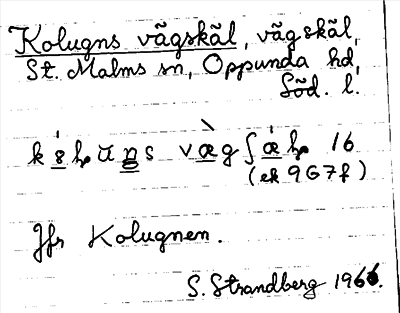 Kolugns vägskäl, vägskäl,
St. Malms sn, Oppunda hd,
Söd. l.
16
(ek 9G7f)
Jfr Kolugnen.
S. Strandberg 1966.